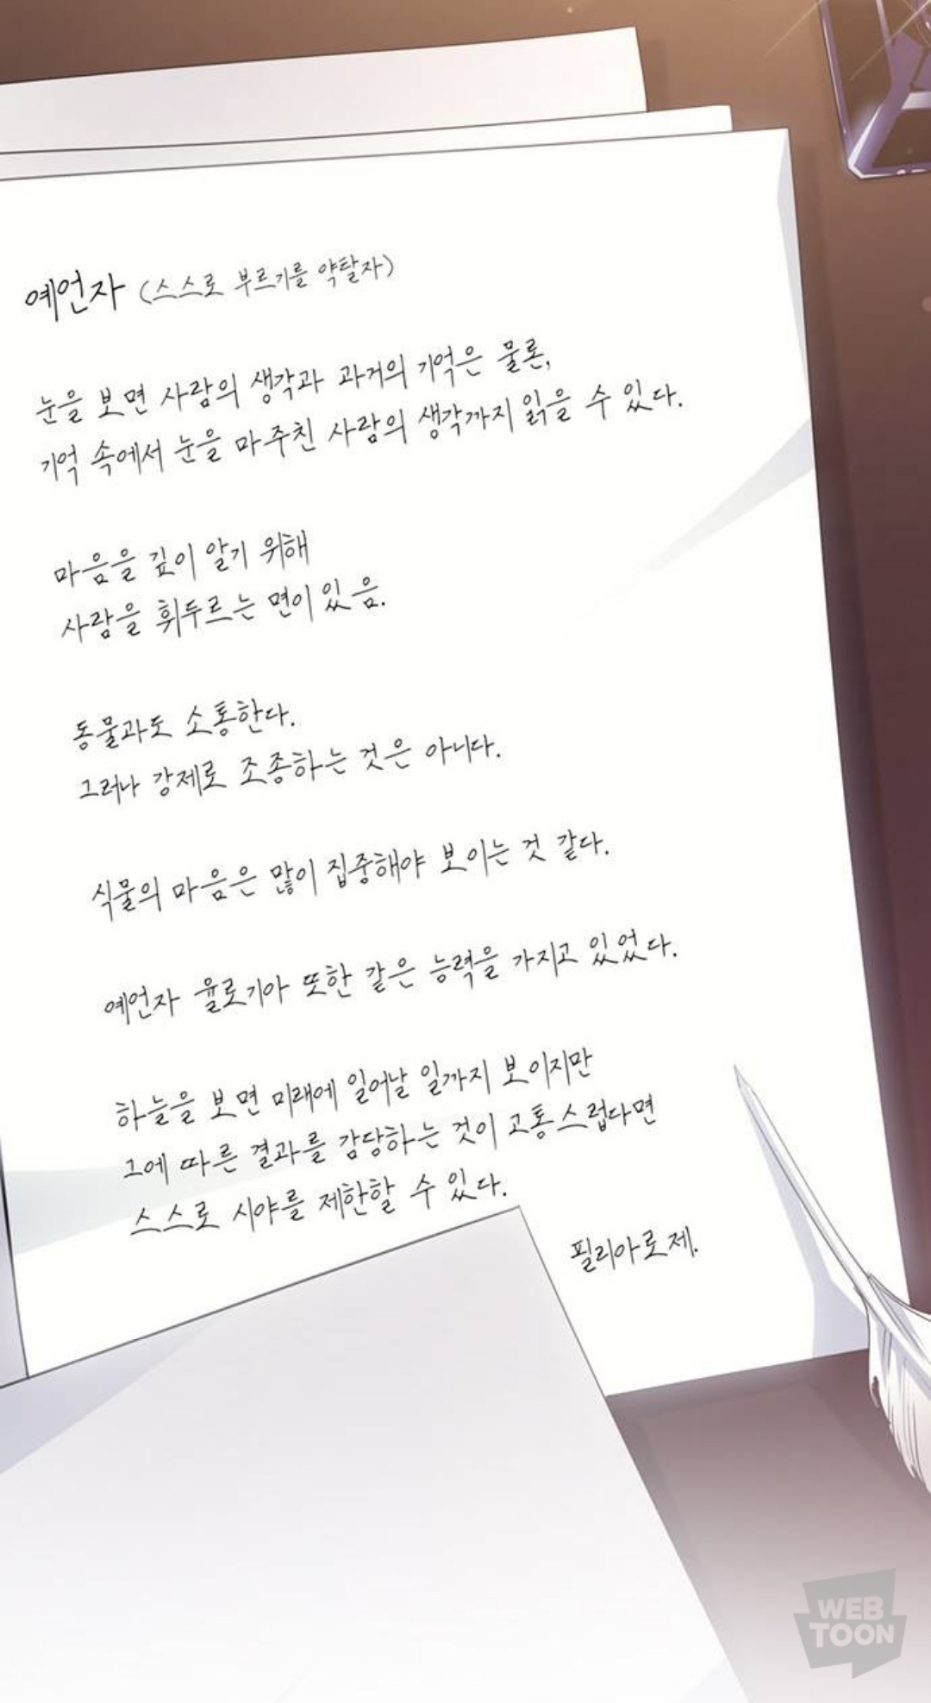 예언자 (스스로 부르기를 약탈자)
눈을 보면 사람의 생각과 과거의 기억은 물론,
기억 속에서 눈을 마주친 사람의 생각까지 읽을 수 있다.
마음을 깊이 알기 위해
사람을 휘두르는 면이 있음.
동물과도 소통한다.
그러나 강제로 조종하는 것은 아니다.
식물의 마음은 많이 집중해야 보이는 것 같다.
예언자 율로기아 또한 같은 능력을 가지고 있었다.
하늘을 보면 미래에 일어날 일까지 보이지만
그에 따른 결과를 감당하는 것이 고통스럽다면
스스로 시야를 제한할 수 있다.
필리아로제.
WEB
TOON